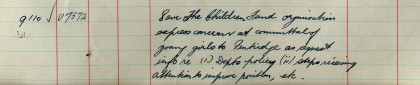 9110 √ U7572 Save The Children Fund organisation
express concern at committal of
young girls to Tunridge as, request
info re (1) Depts policy (ii) steps receiving
attention to improve position, etc.